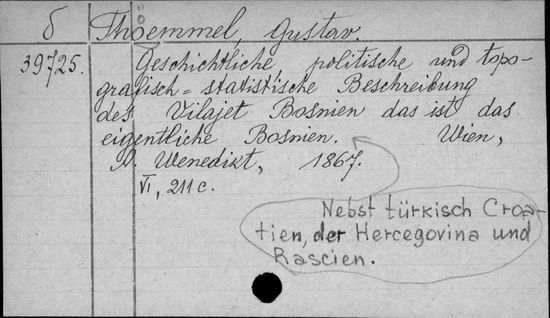 б Thoemmel, Gustav.
ö
39725. Geschichtliche, politische und topo-
grafisch=statistische Beschreibung
des Vilajet Bosnien das ist das
eigentliche Bosnien. Wien,
A. Wenedikt, 1867.
VI, 211 c.
Nebst türkisch Croa-
tien, der Hercegovina und
Rascien.